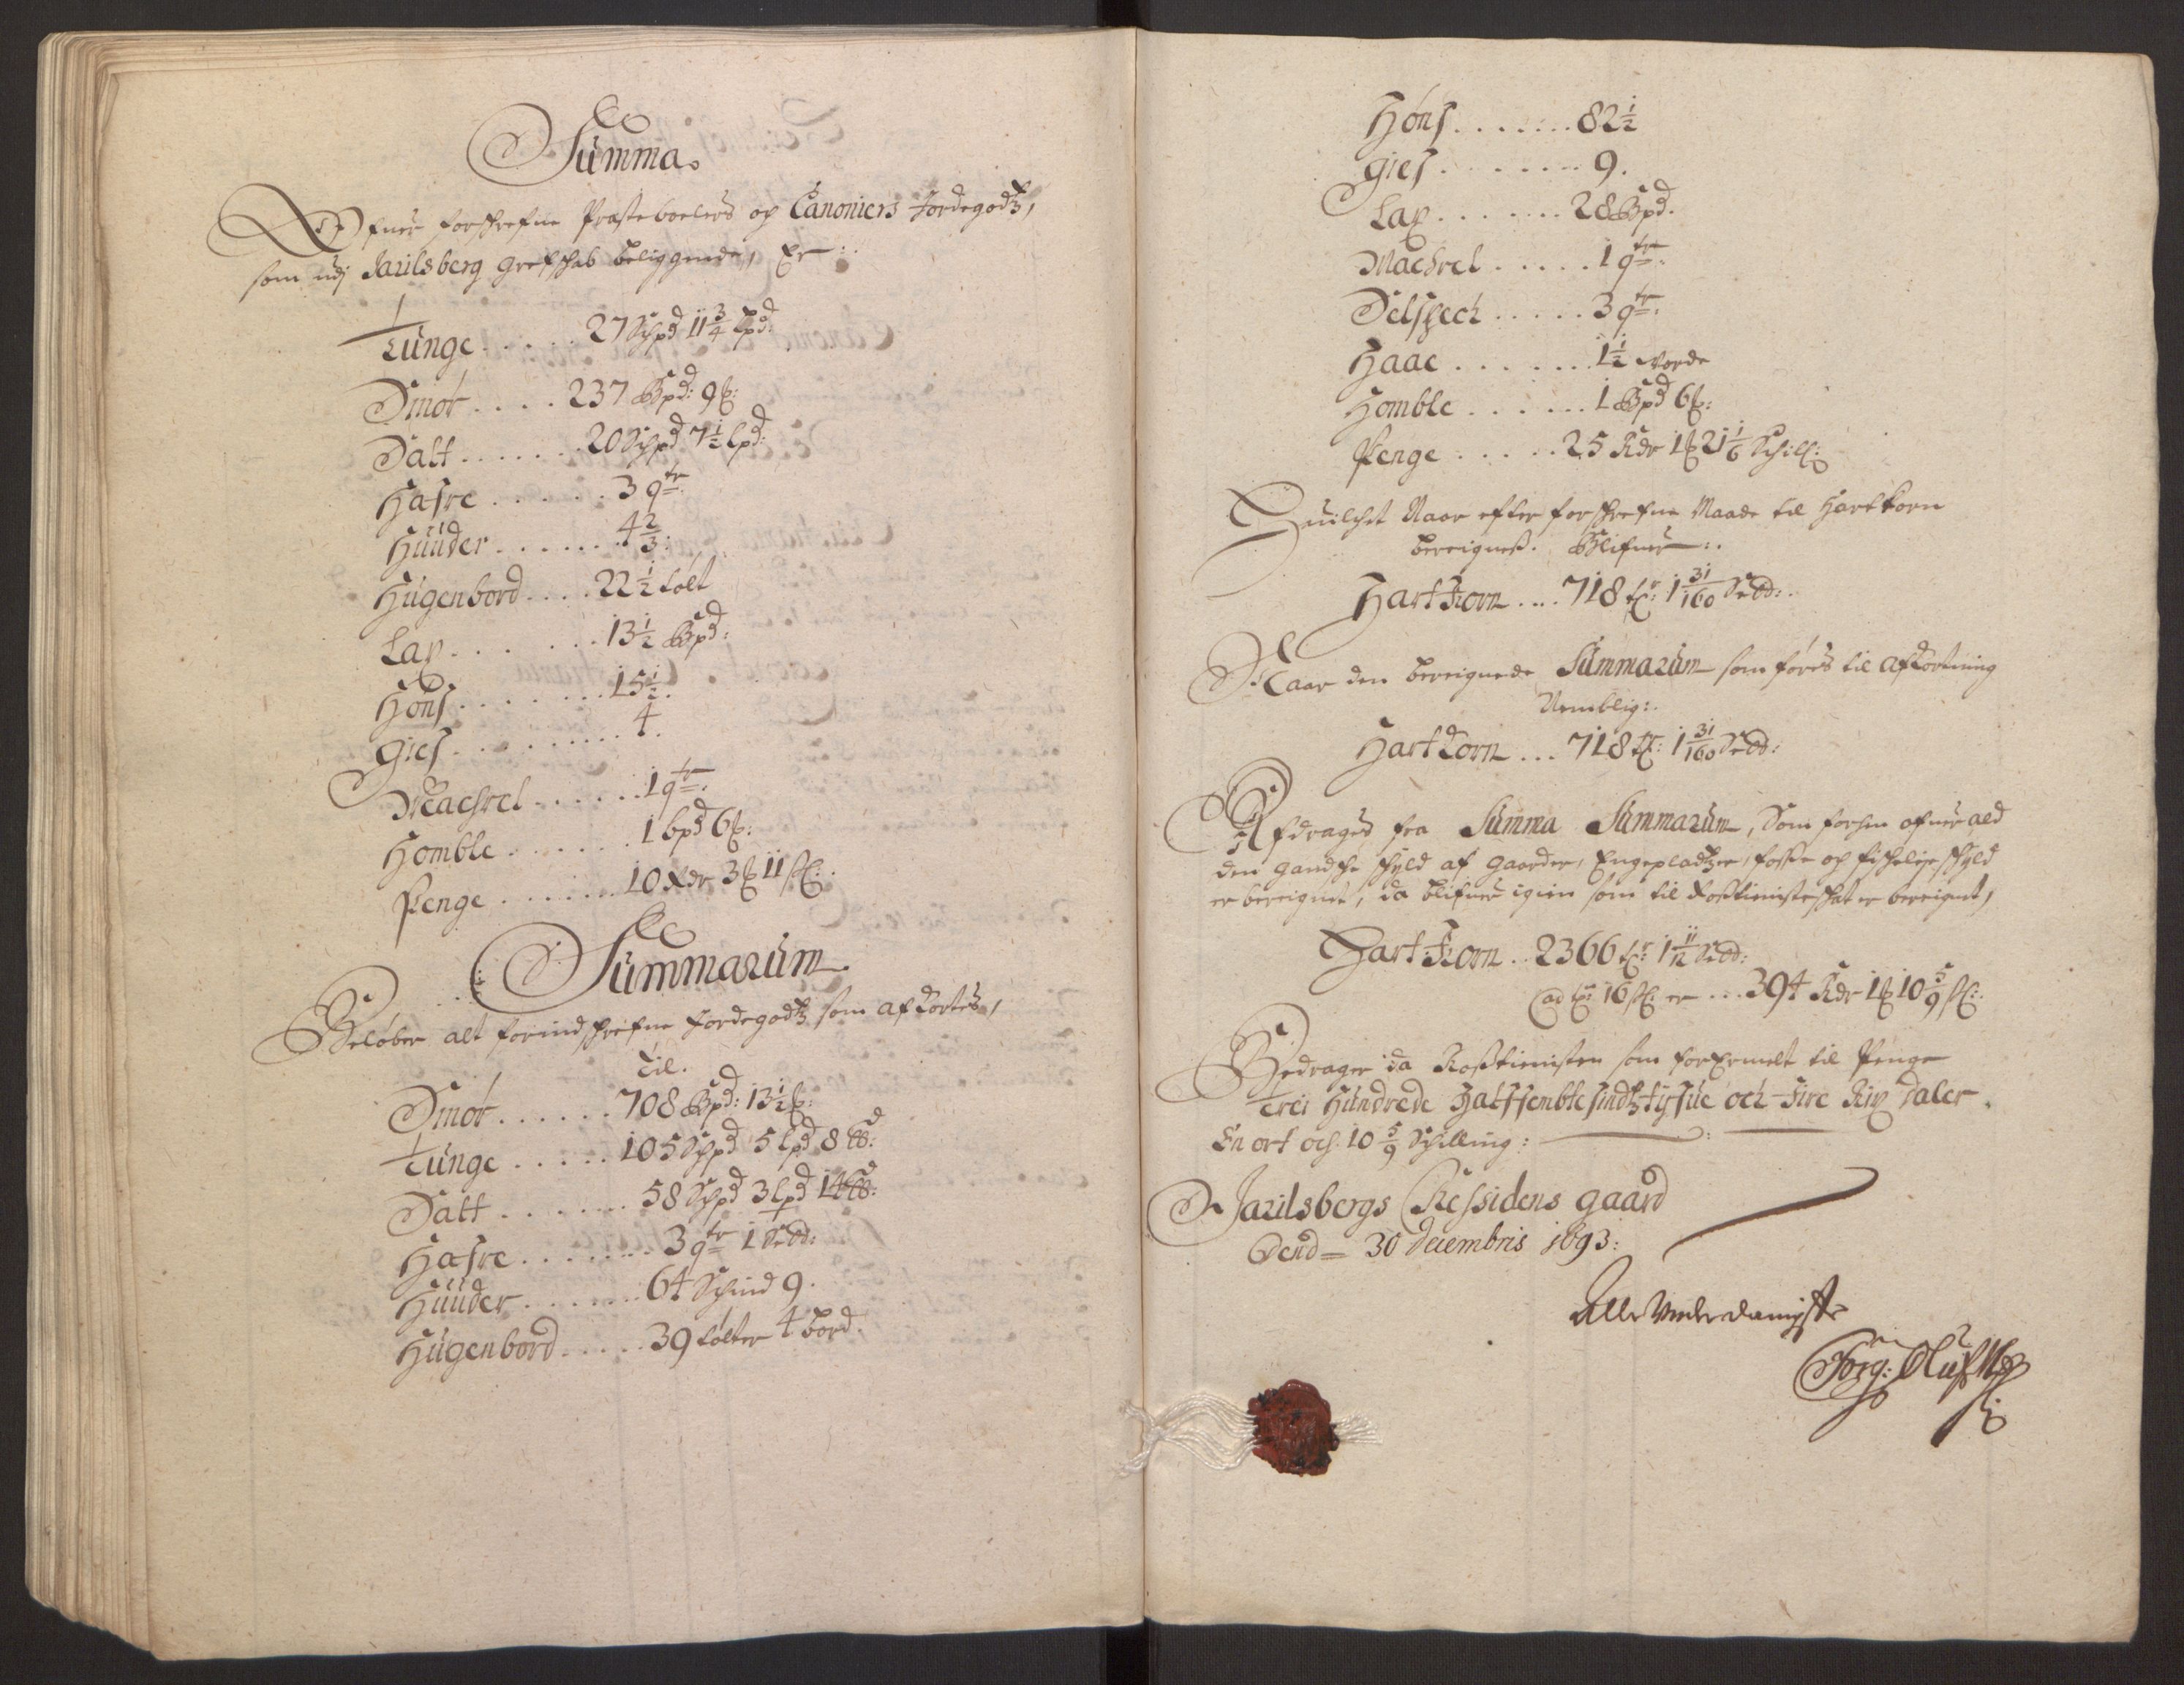 Summa.
Ofver forschrefne Præsteboelers og Canonicers Jordegodtz,
som udj Jarilsberg grefschab beliggende, Er:
Tunge . . . . . 27 Schpd 11 3/4 Lpd:
Smör . . . . 237 Bpd: 9 ℔:
Salt . . . . . . . 20 Schpd 7 1/2 Lpd:
Hafre . . . . . . 3 qtr.
Hüüder . . . . . . 4 2/3:
Hügenbord . . . . 22 1/2 tolt
Lax . . . . . . 13 1/2 Bpd:
Höns . . . . . . . 15 1/2.
Gies . . . . . . . . . 4.
Machrel . . . . . . 1 qtr.
Homble . . . . . . 1 bpd 6 ℔:
Penge . . . . . . . 10 Rdr 3 ℔ 11 sk:
Summarum
Beløber alt forindschrefne Jordegodtz som afkortes,
Til.
Smör . . . . . . 708 Bpd: 13 1/2 ℔:
Tunge . . . . . 105 Schpd 5 lpd 8 ℔:
Salt . . . . . . . 58 Schpd 3 lpd 14 ℔:
Hafre . . . . . . . 3 qtr 1 Sedd:
Hüüder . . . . . . . 64 Schind 9.
Hügenbord . . . . . 39 tolter 4 bord.
Höns . . . . . . . 82 1/2
Gies . . . . . . . . 9.
Lax . . . . . . . 28 Bpd.
Machrel . . . . . 1 qtr.
Selspech . . . . . 3 qtr.
Haae . . . . . . . 1 1/2 Vorde
Homble . . . . . . 1 Bpd 6 ℔:
Penge . . . . . 25 Rdr 1 ℔ 21 1/6 Schill:
Huilchet Naar efter forschrefne Maade til Hartkorn
bereignes. Blifver:.
Hart Korn . . . . 718 tr: 1 31/160 Sedd:.
Naar den bereignede Summarum som föres til Afkortning
Nemblig:.
Hart Korn . . . 718 tr: 1 31/160 Sedd:
Afdrages fra Summa Summarum, Som forhen ofver ald
den gandsche schyld af gaarder, Engepladtzer, fosse og fischeleje schyld
er bereignet, da blifver igien som til Rostienisteschat er bereignet,
Hart Korn . . 2366 tr: 1 11/12 Sedd:
ad tr: 16 sk: er . . . 394 Rdr 1 ℔ 10 5/9 sk:.
Bedrager da Rostienisten som forermelt til Penge
Trei Hundrede Halffemblesindtztyfue och Fire Rix daler.
En ort och 10 5/9 Schilling:
Jarilsbergs Ressidens gaard
Dend 30 Decembris 1693:
Alle Underdanigste
Jörg: Oluf